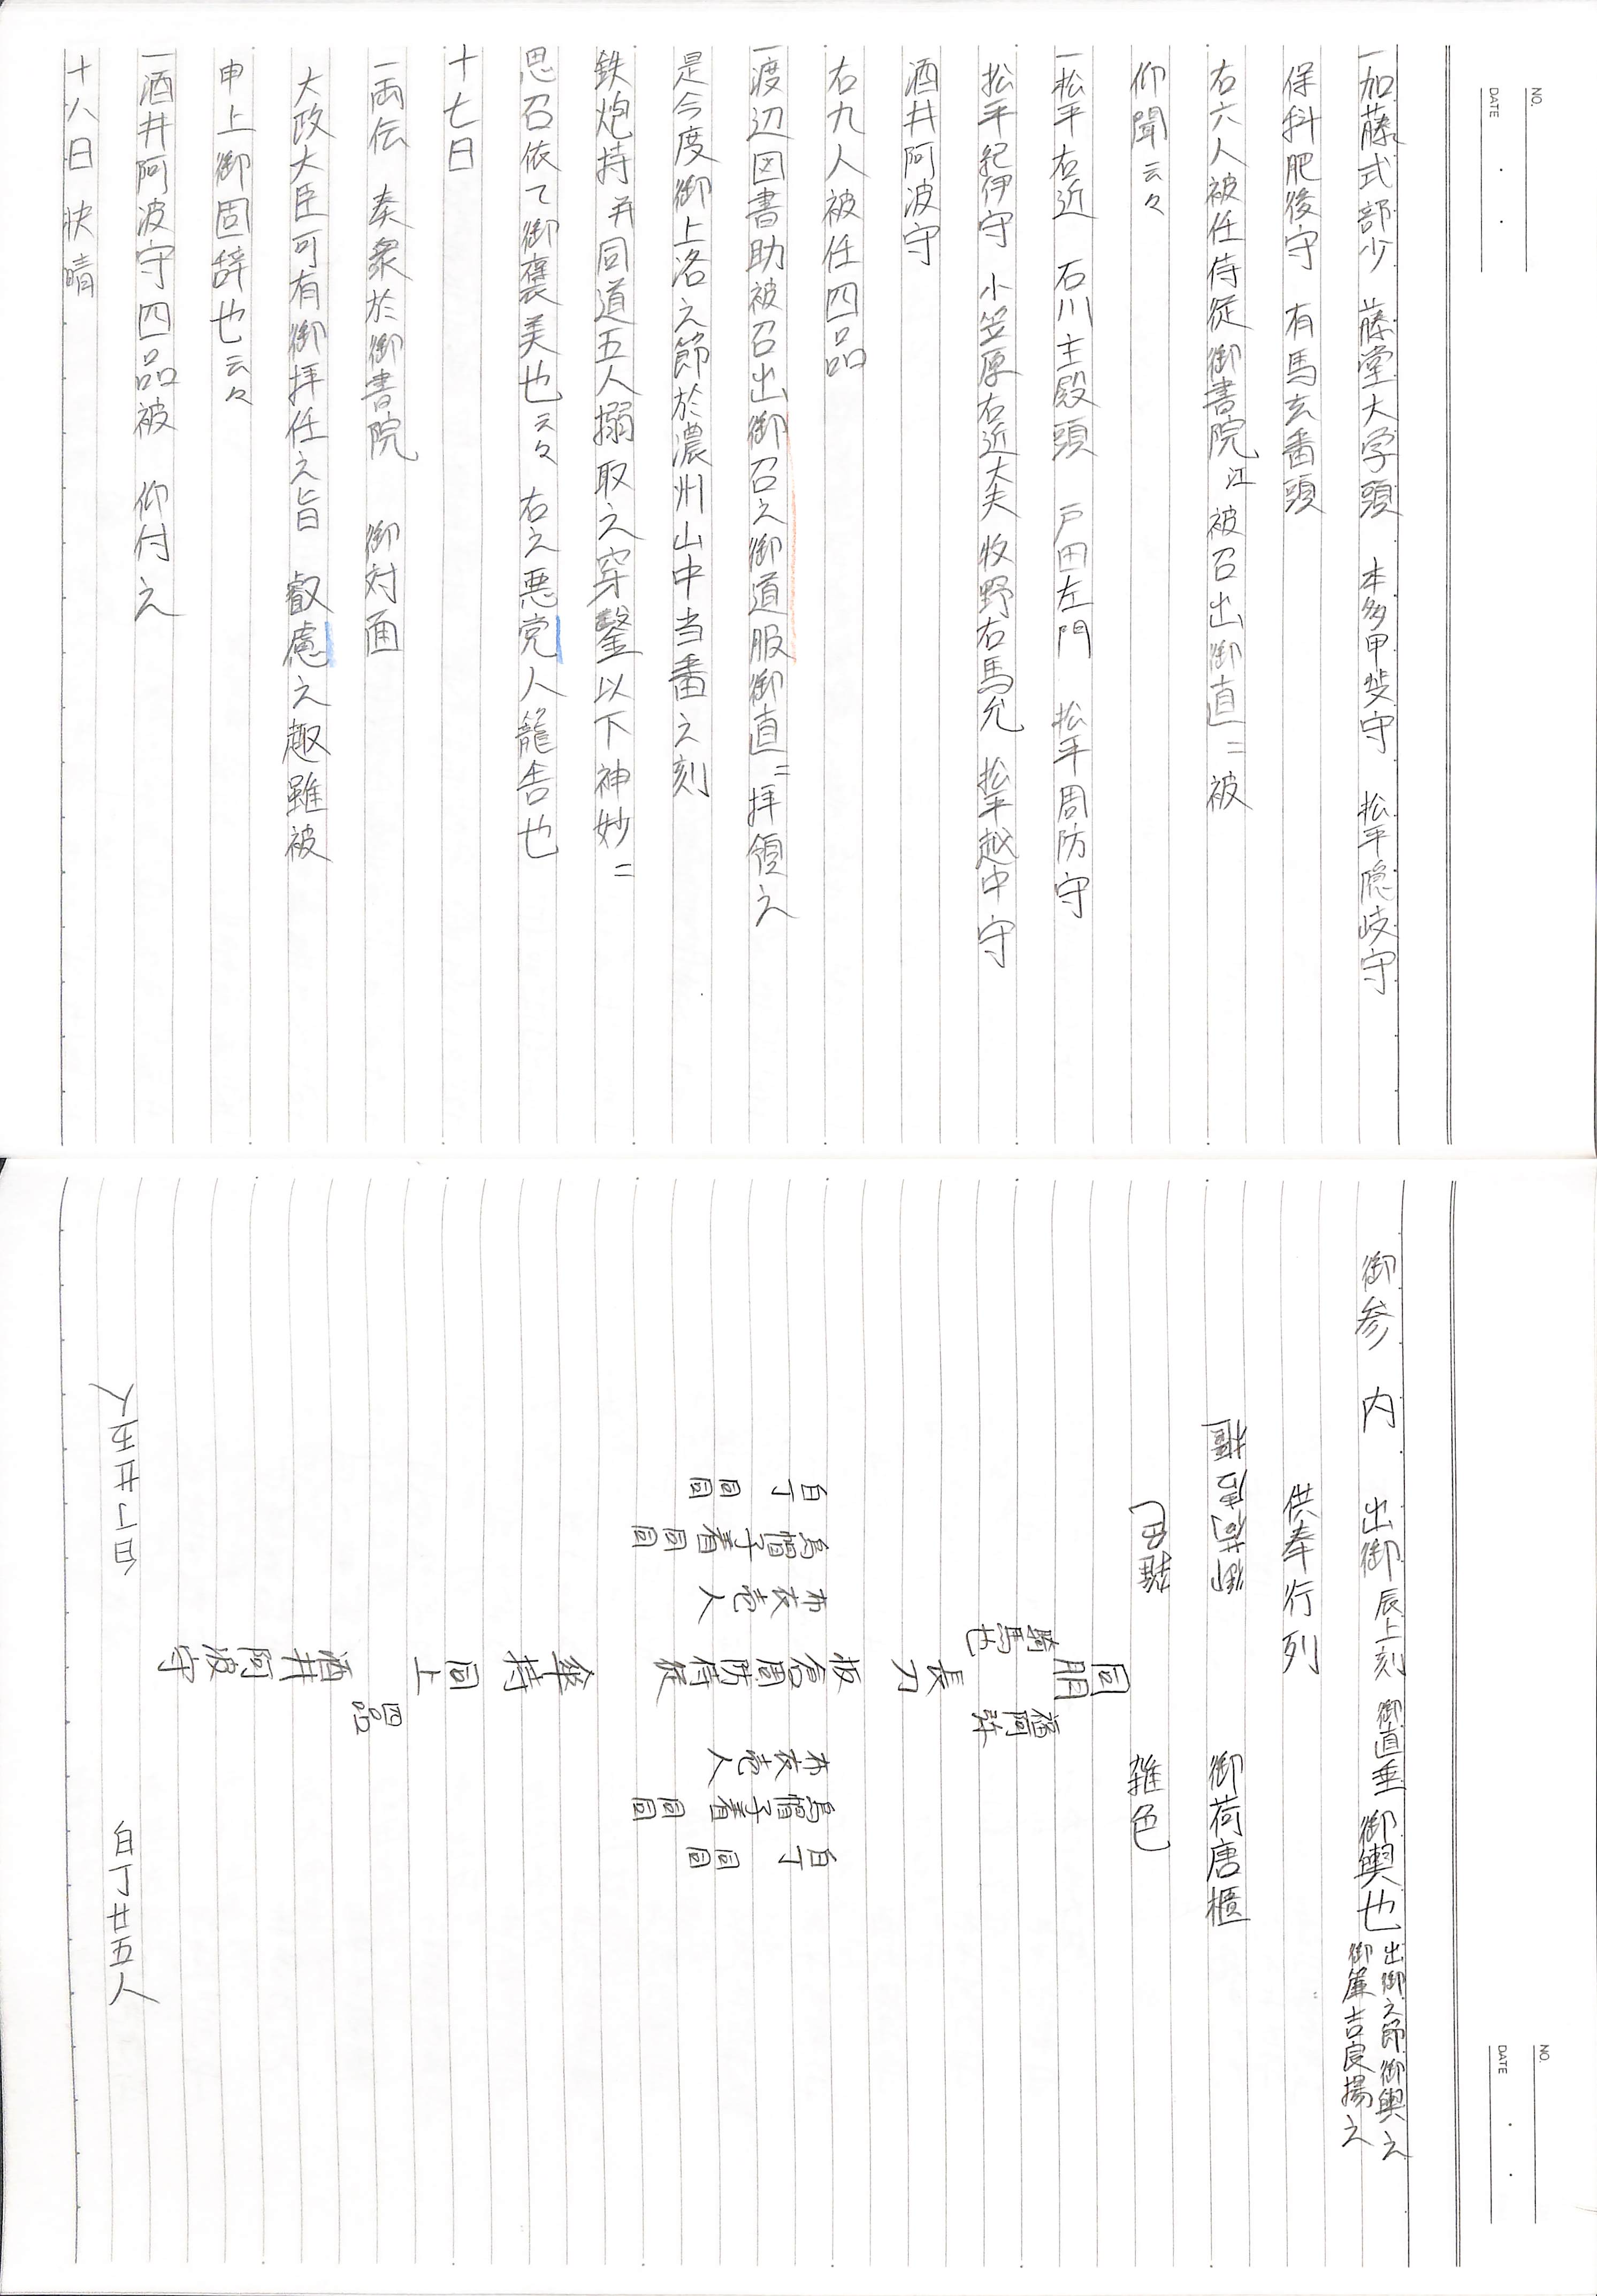 NO.
DATE
一加藤式部少　藤堂大学頭　本多甲斐守　松平隠岐守
保科肥後守　有馬玄番頭
右六人被任侍従御書院江被召出御直ニ被
仰聞云々
一松平右近　石川主殿頭　戸田左門　松平周防守
松平紀伊守　小笠原右近大夫　牧野右馬允　松平越中守
酒井阿波守
右九人被任四品
一渡辺図書助被召出御召之御道服御直ニ拝領之
是今度御上洛之節於濃州山中当番之刻
鉄炮持并同道五人搦取之穿鑿以下神妙ニ
思召依て御褒美也云々　右之悪党人籠舎也
十七日
一両伝　奏衆於御書院　御対面
大政大臣可有御拝任之旨　叡慮之趣雖被
申上御固辞也云々
一酒井阿波守四品被　仰付之
十八日　快晴
NO.
DATE
御参　内　出御辰上刻　御直垂　御輿也　出御之節御輿之
御簾吉良揚之
供奉行列
御荷唐櫃
御荷唐櫃
雑色
雑色
同朋
福阿弥
騎馬也
長刀
板倉周防侍従
布衣壱人
烏帽子着　同　同
白丁　同　同
布衣壱人
烏帽子着　同　同
白丁　同　同
傘持
同上
酒井阿波守
四品
白丁廿五人
白丁廿五人